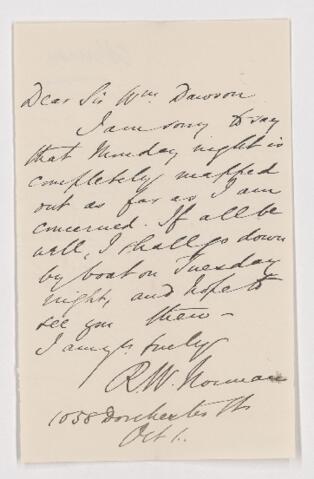 Dear Sir Wm. Dawson
I am sorry to say
that Monday night is
completely mapped
out as far as I am
concerned. If all be
well, I shall go down
by boat on Tuesday
night, and hope to
see you then –
I am yrs truly
R. W. Norman
1058 Dorchester St
Oct 1.